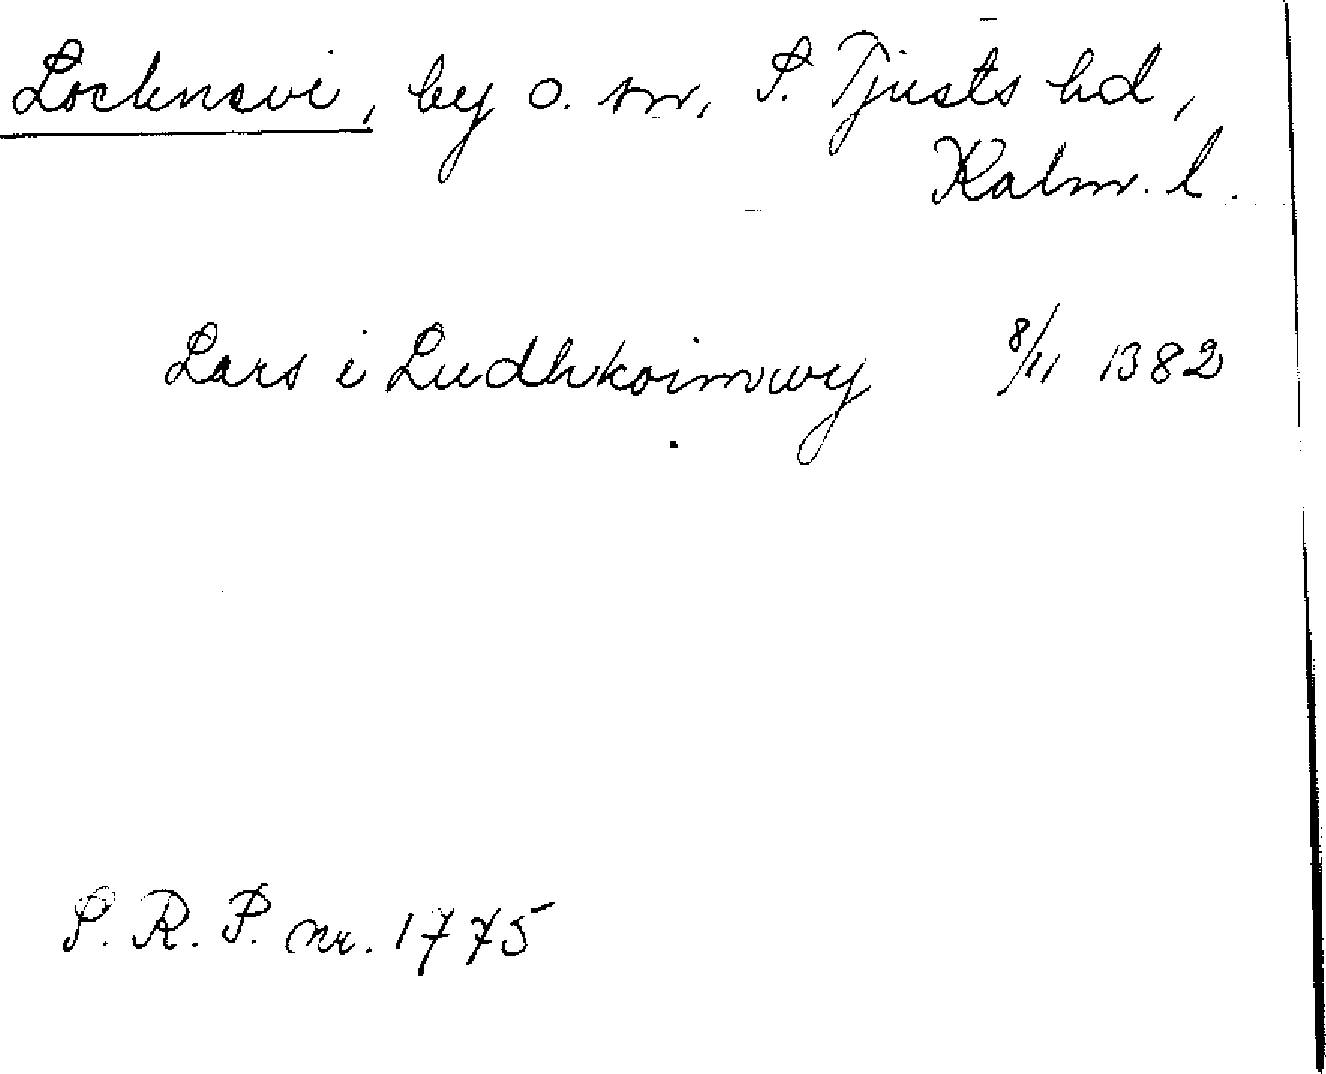 Locknevi, by o. sn, S. Tjusts hd,
Kalm. l.
Lars i Ludhkoinvwy 8/11 1382
S. R. P. nr. 1775